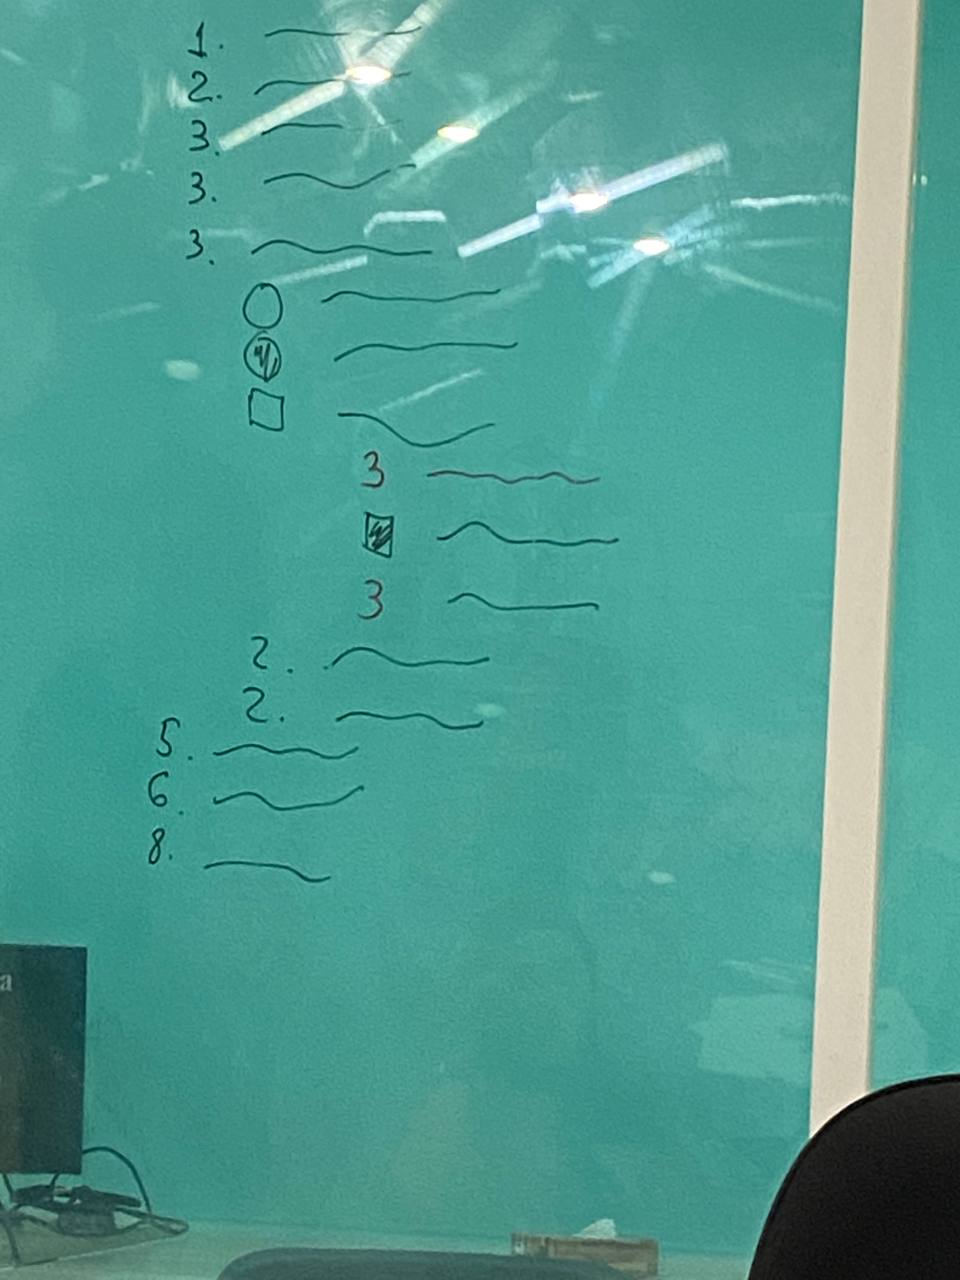 1.
2.
3.
3.
3.
3
3
2.
2.
5.
6.
8.
a